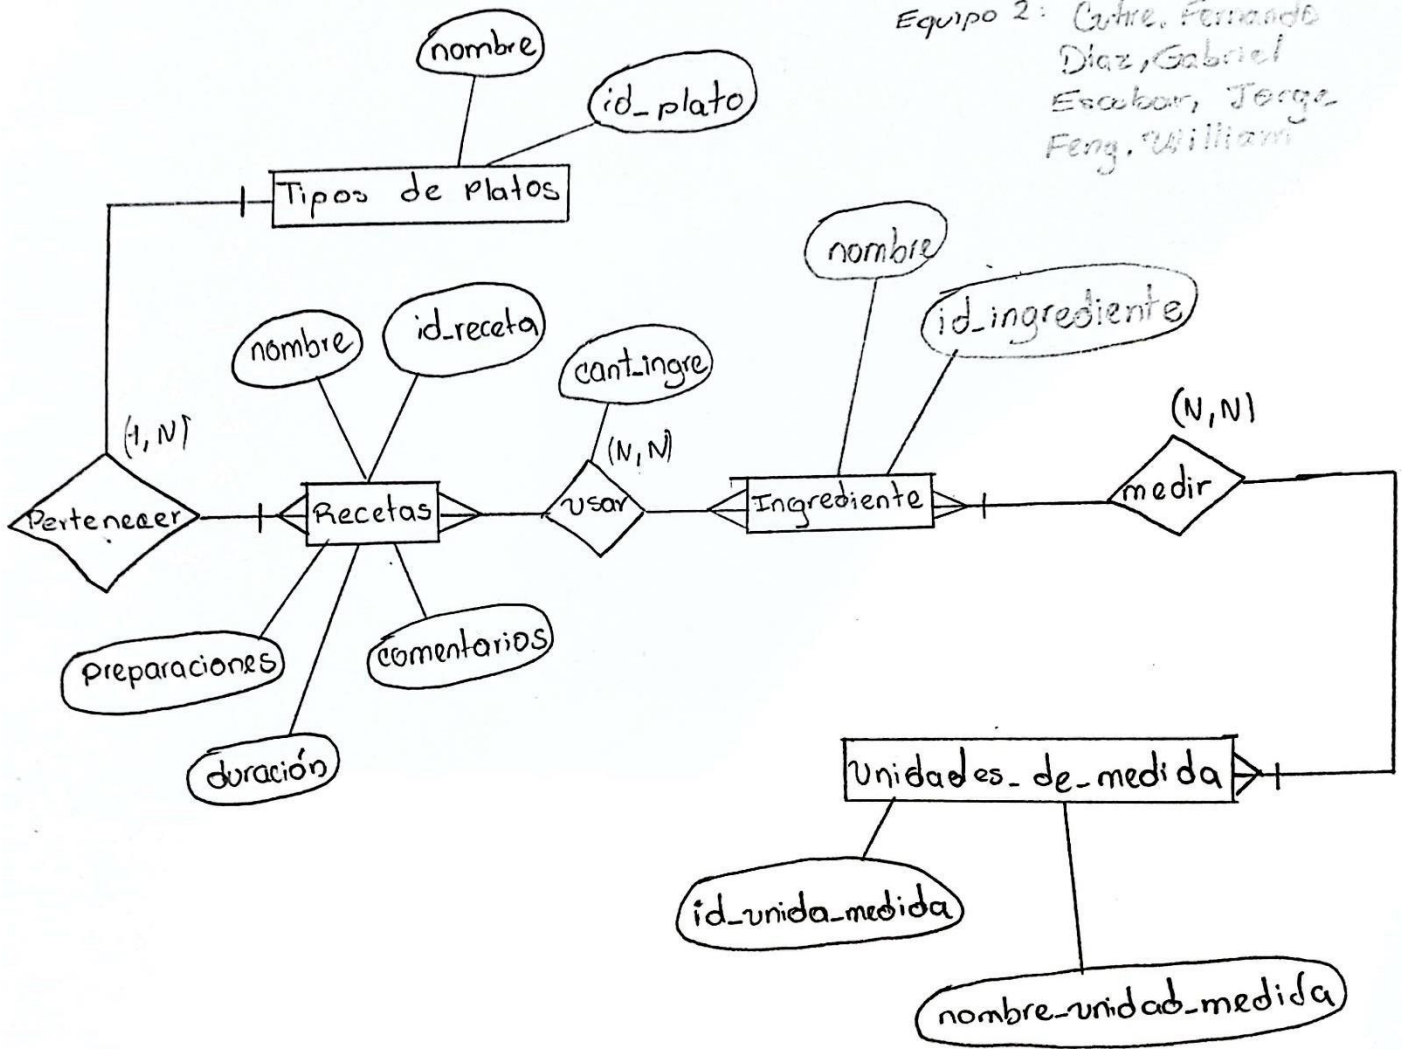 Equipo 2: Fernando
Díaz, Gabriel
Escobar, Jorge
Feng. William
nombre
id_plato
Tipos de Platos
nombre
id_ingrediente
nombre
id_receta
cant_ingre
(1, N)
(N, N)
(N, N)
Pertenecer
Recetas
usar
Ingrediente
medir
preparaciones
comentarios
duración
Unidades_de_medida
id_unida_medida
nombre_unidad_medida